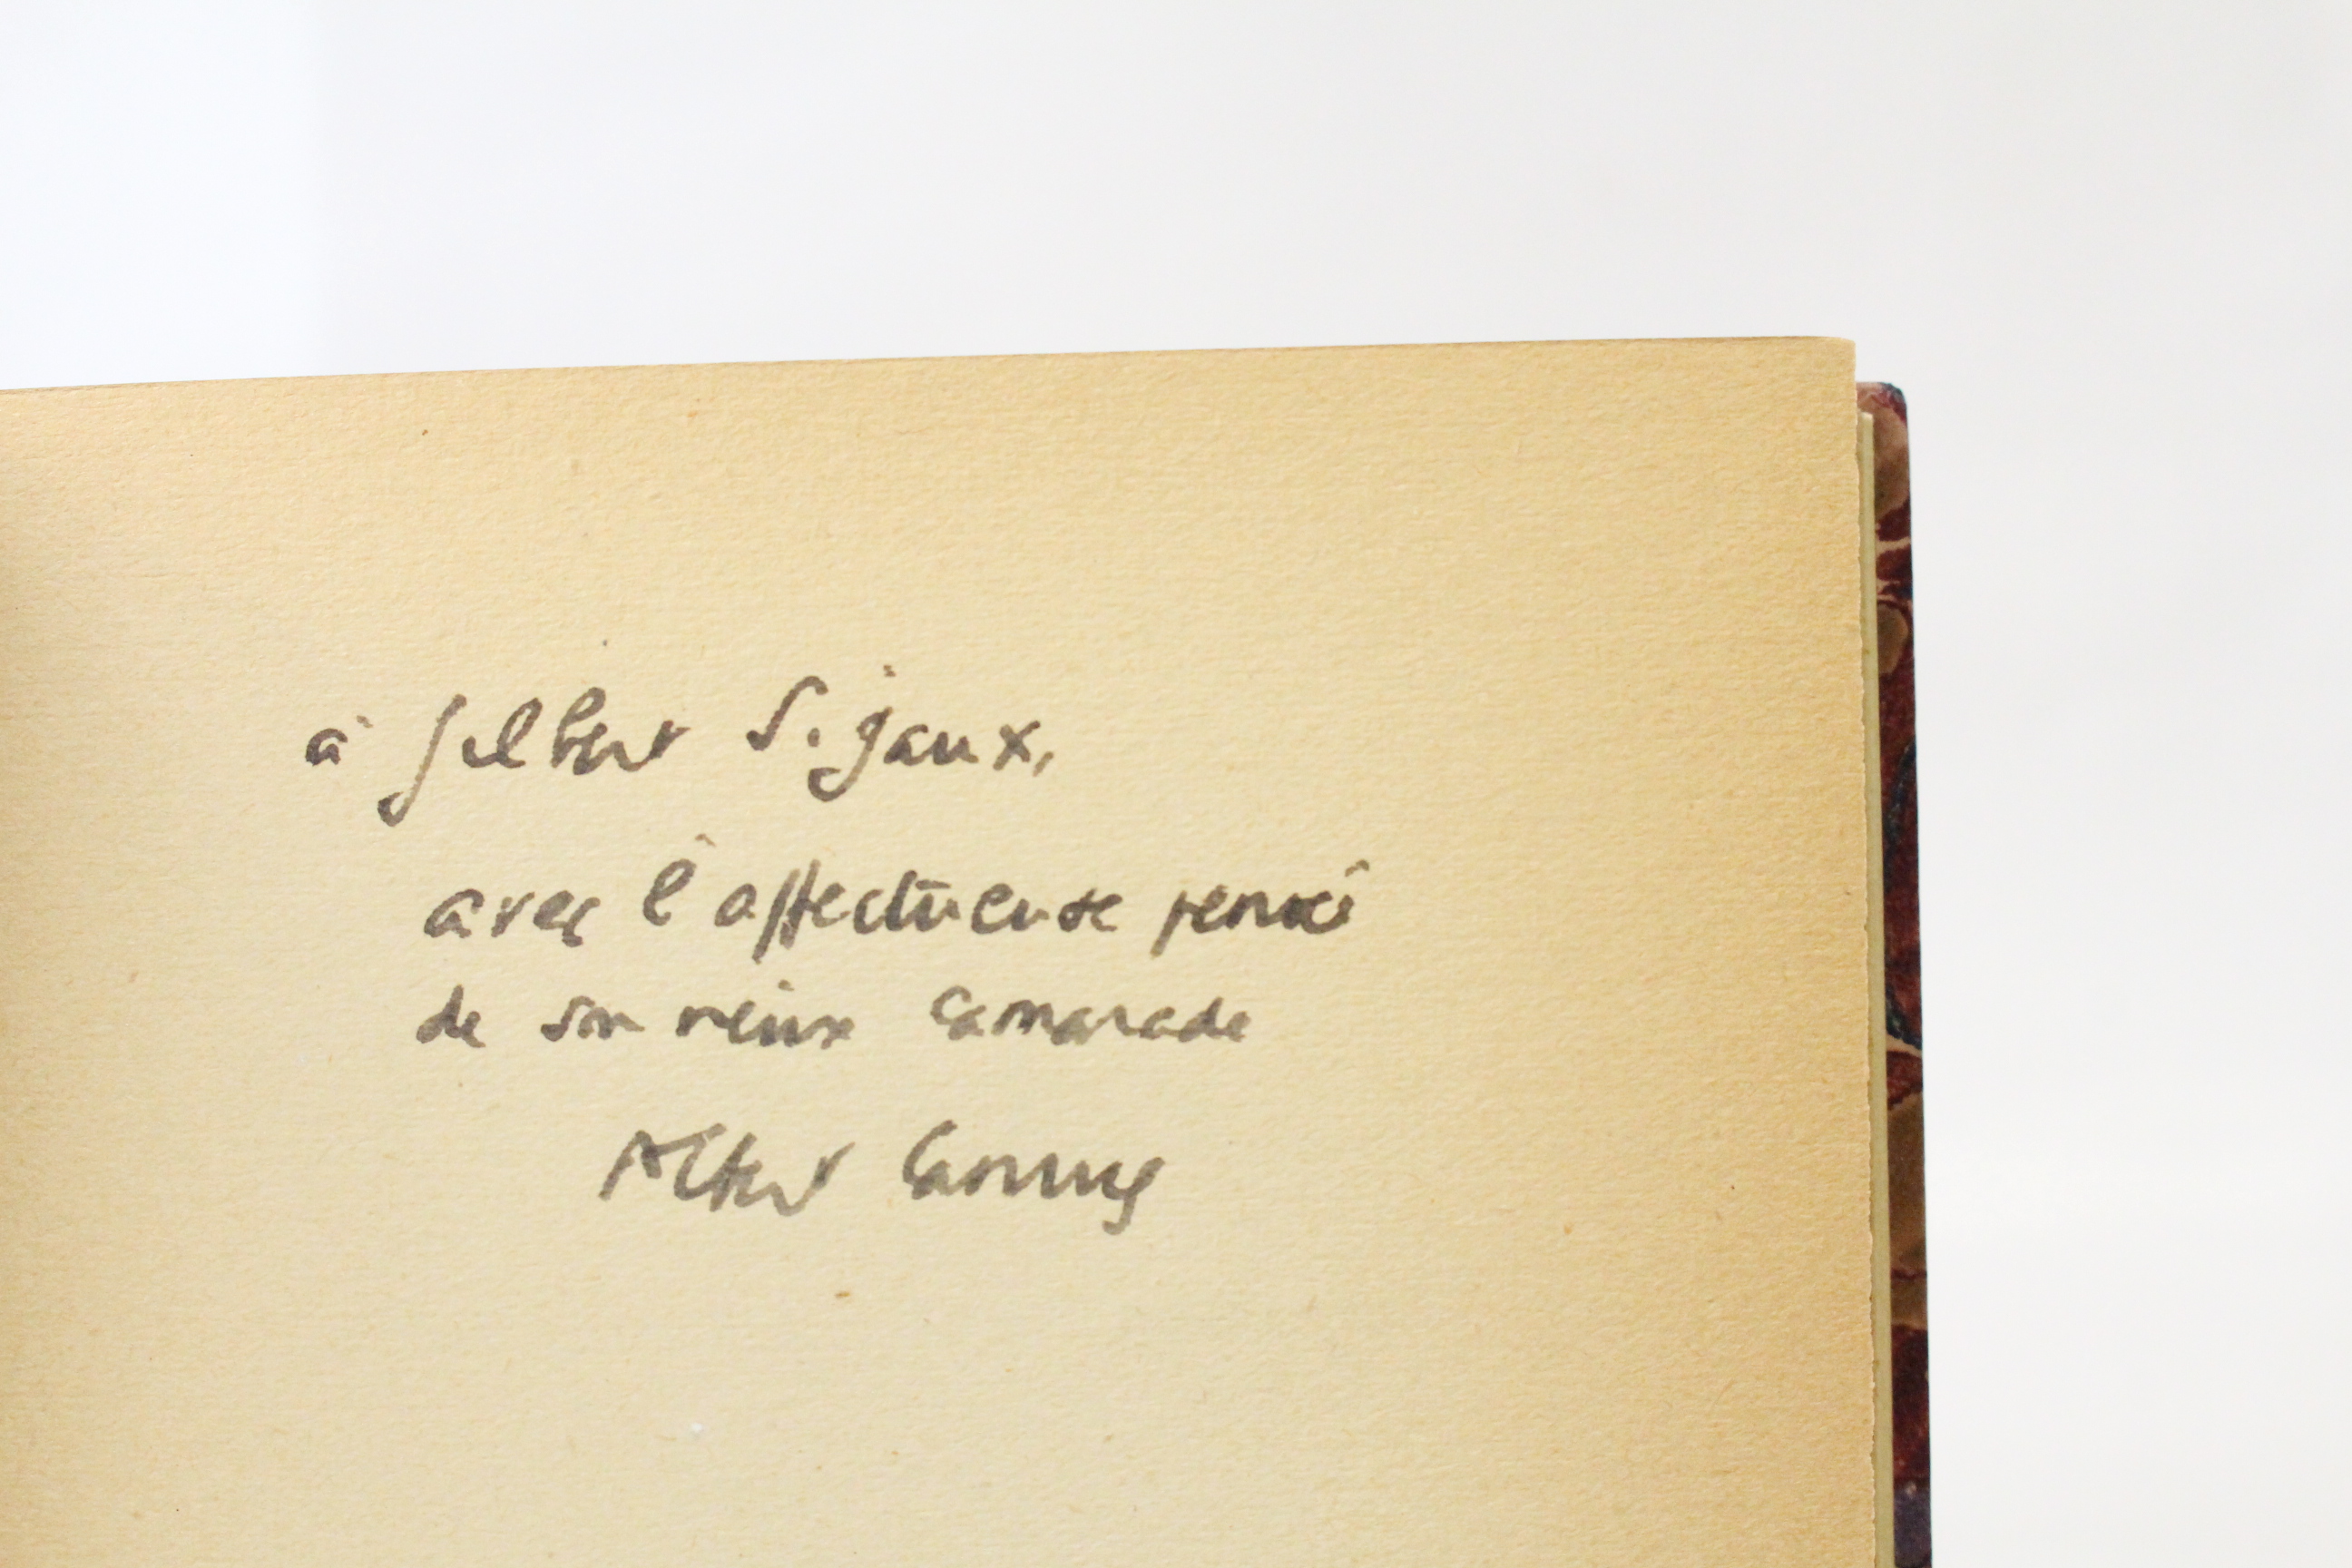 à Gilbert Sigaux,
avec l'affectueuse pensée
de son vieux camarade
Albert Camus